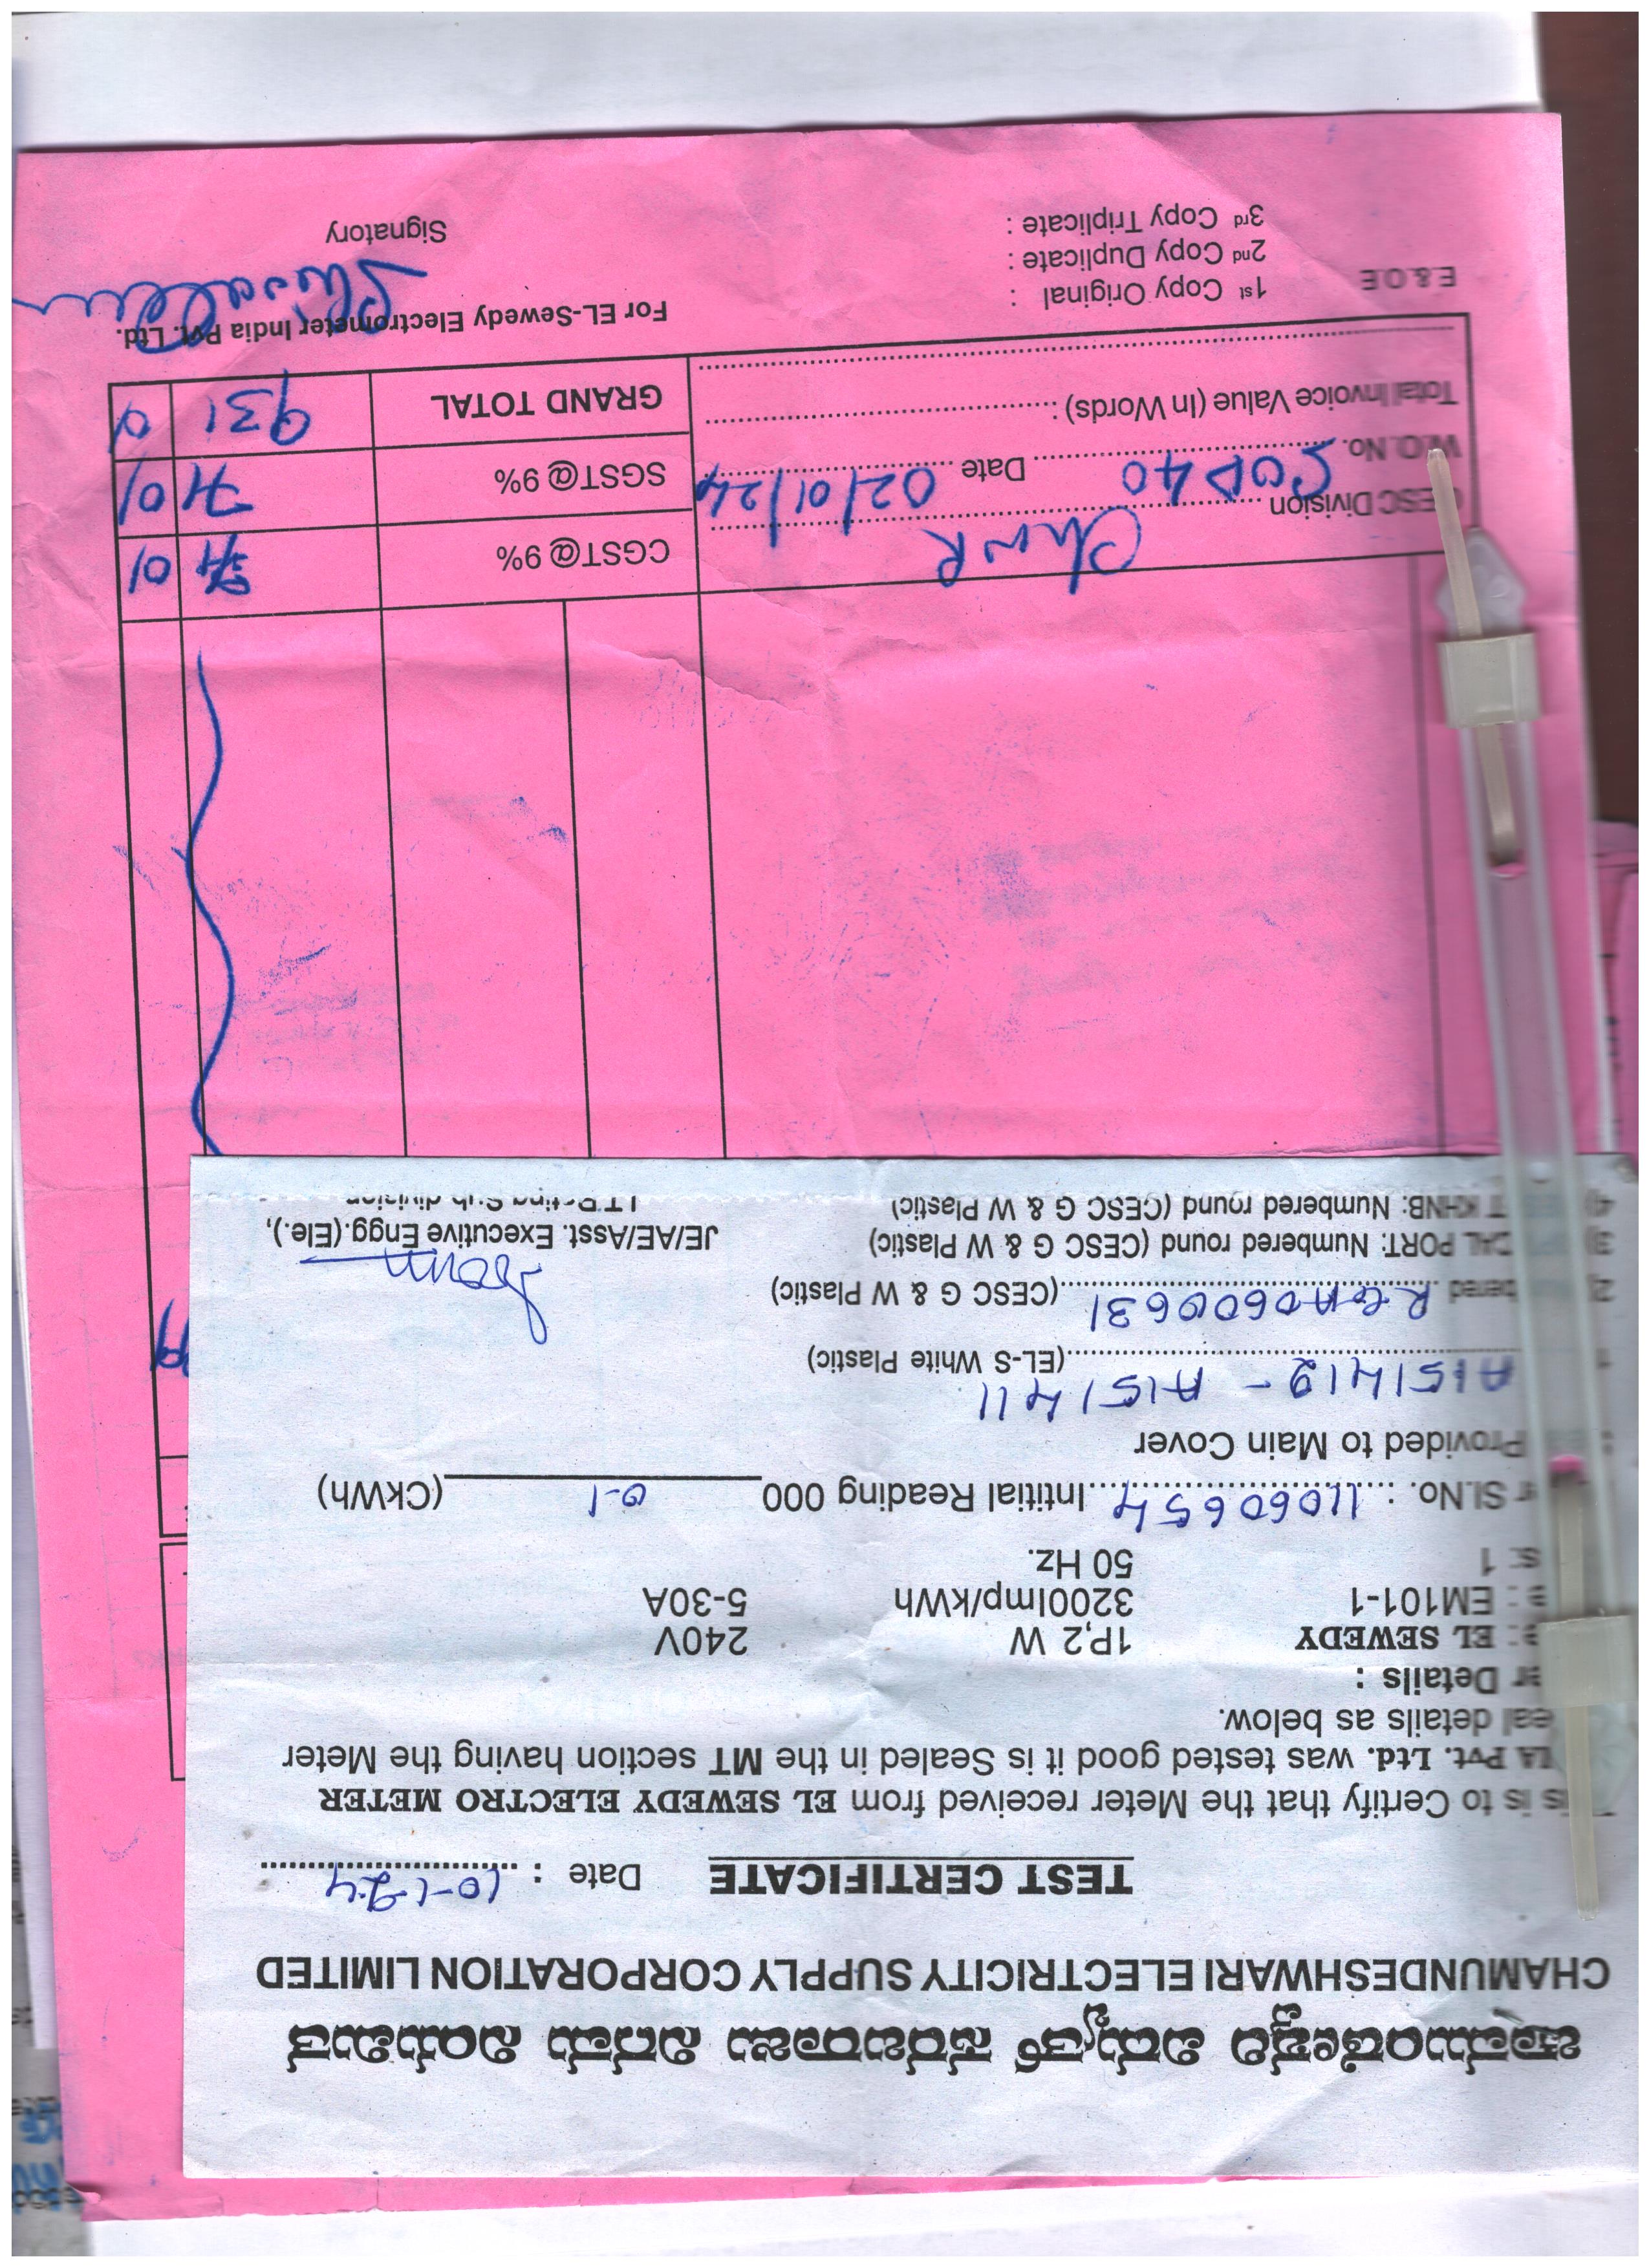 ಚಾಮುಂಡೇಶ್ವರಿ ವಿದ್ಯುತ್ ಸರಬರಾಜು ನಿಗಮ ನಿಯಮಿತ
CHAMUNDESHWARI ELECTRICITY SUPPLY CORPORATION LIMITED
TEST CERTIFICATE Date : 10-1-24
is is to Certify that the Meter received from EL SEWEDY ELECTRO METER
IA Pvt. Ltd. was tested good it is Sealed in the MT section having the Meter
eal details as below.
er Details :
e: EL SEWEDY 1P,2 W 240V
e : EM101-1 3200Imp/kWh 5-30A
s: 1 50 Hz.
r Sl.No. : 11060654 Intitial Reading 000 0-1 (CKWh)
Provided to Main Cover
A151412 - A151411 (EL-S White Plastic)
2) bered 0600631 (CESC G & W Plastic)
3) CAL PORT: Numbered round (CESC G & W Plastic)
4) T KHNB: Numbered round (CESC G & W Plastic)
JE/AE/Asst. Executive Engg.(Ele.),
CESC Division
CGST@ 9% 71 01
W.O. No. SOD40 Date 02/01/24
SGST@ 9% 71 01
Total Invoice Value (In Words) :
GRAND TOTAL 931 0
E.& O.E
1st Copy Original :
2nd Copy Duplicate :
3rd Copy Triplicate :
For EL-Sewedy Electrometer India Pvt. Ltd.
Signatory